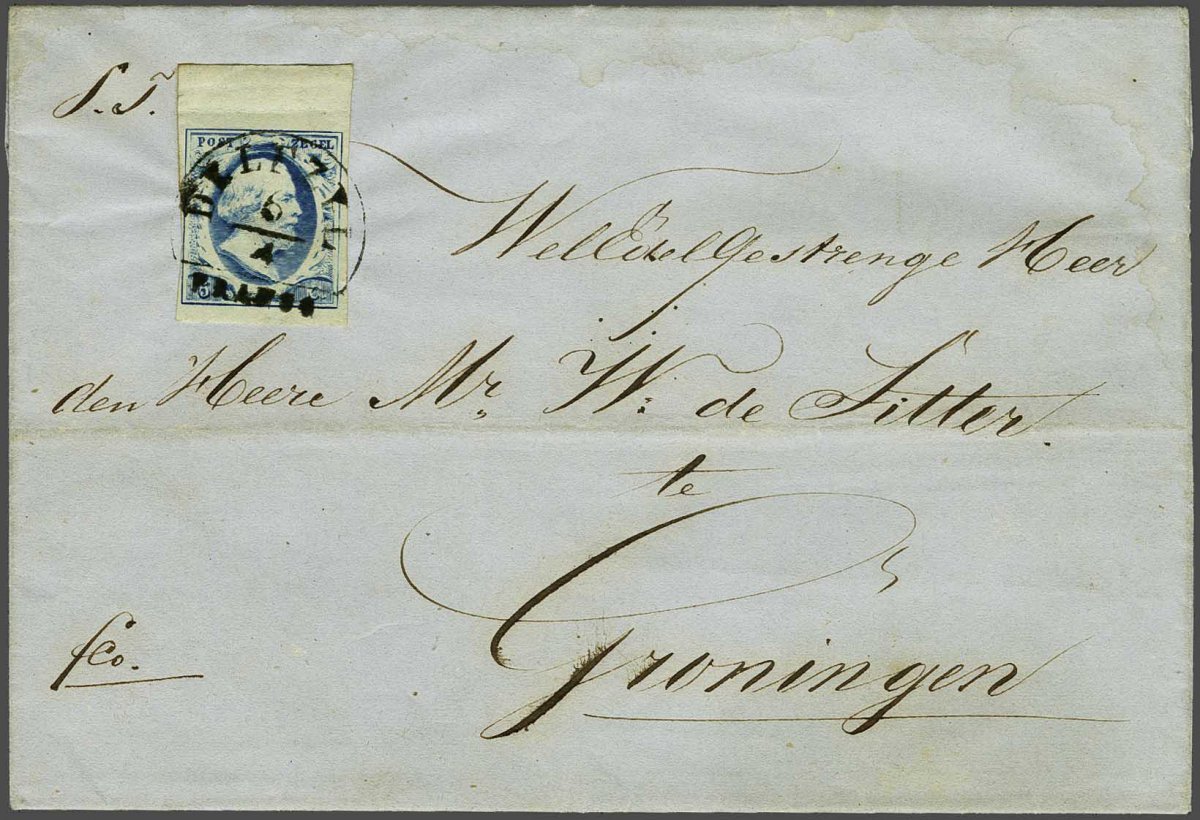 S.T.
POST ZEGEL
DELFZYL
6
4
5 C.
FRANCO
WelEdelGestrenge Heer
den Heere Mr. W. de Sitter.
te
Groningen
fco.